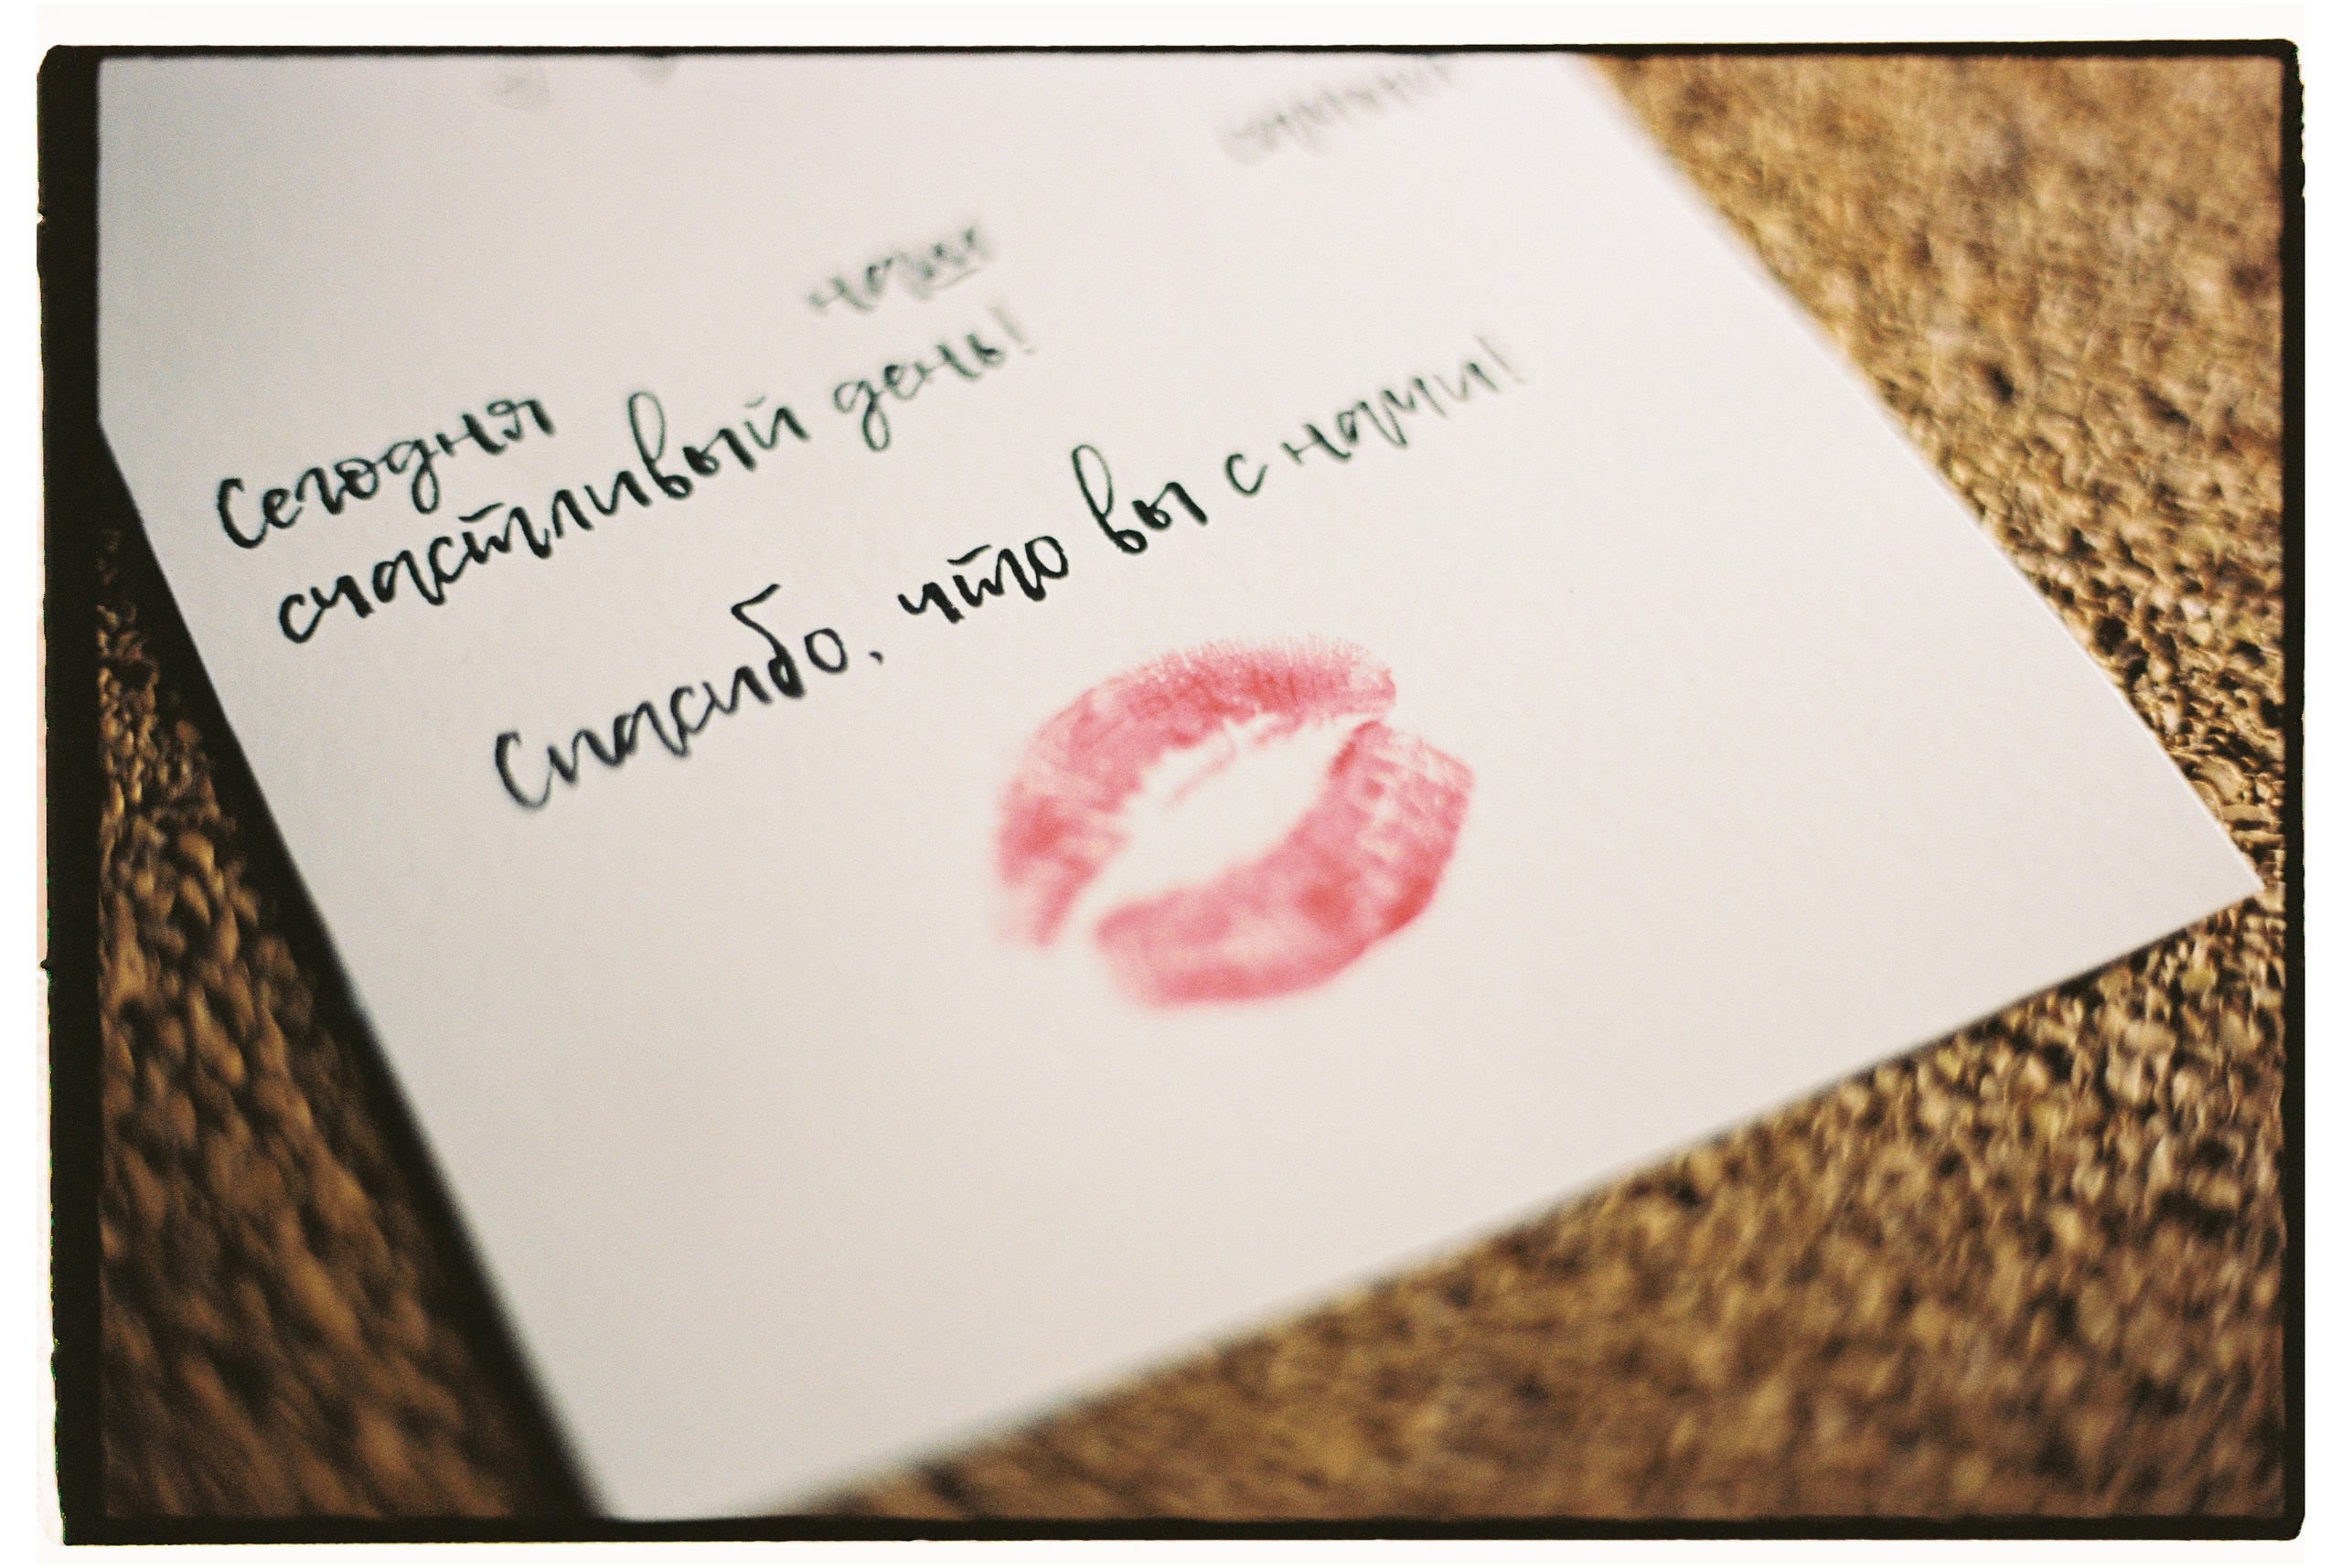 Сегодня наш
счастливый день!
Спасибо, что вы с нами!